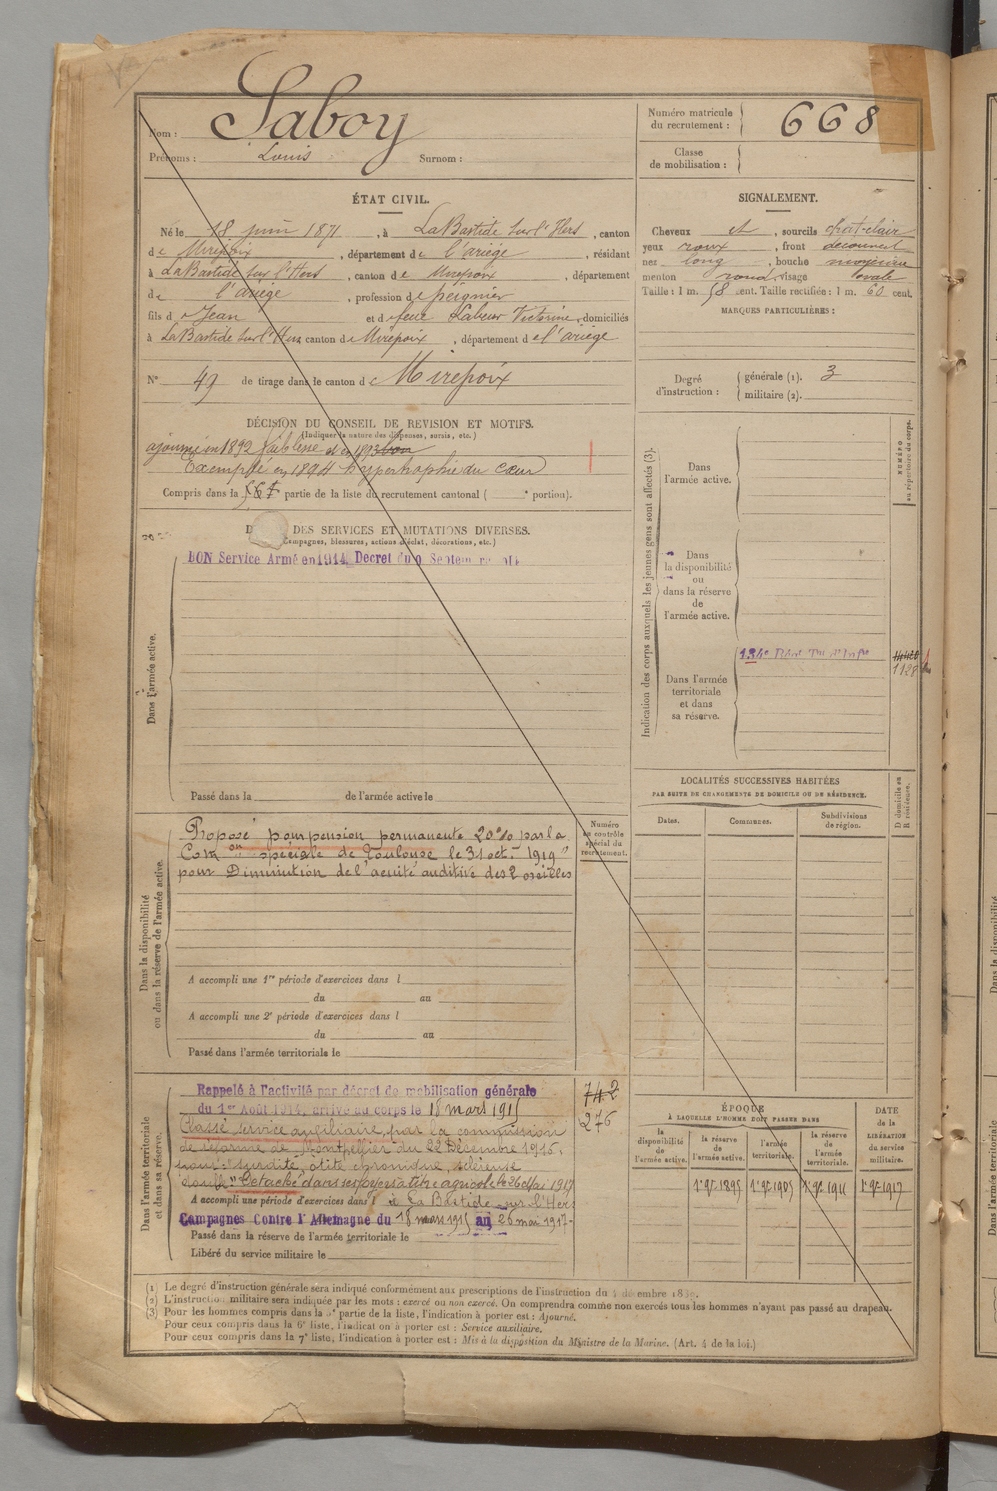 Nom : Saboy
Prénoms : Louis Surnom :
Numéro matricule du recrutement : 668
Classe de mobilisation :
ÉTAT CIVIL.
Né le 18 juin 1871, à LaBastide sur l'Hers, canton
de Mirepoix, département de l'ariège, résidant
à LaBastide sur l'Hers, canton de Mirepoix, département
de l'ariège, profession de peignier
fils de Jean et de feue Labeur Victorine, domiciliés
à LaBastide sur l'Hers canton de Mirepoix, département de l'ariège
N° 49 de tirage dans le canton de Mirepoix
SIGNALEMENT.
Cheveux et, sourcils chat-clair
yeux roux, front découvert
nez long, bouche moyenne
menton rond, visage ovale
Taille : 1 m. 58 cent. Taille rectifiée : 1 m. 60 cent.
MARQUES PARTICULIÈRES :
Degré d'instruction : générale (1). 3
militaire (2).
DÉCISION DU CONSEIL DE REVISION ET MOTIFS.
(Indiquer la nature des dispenses, sursis, etc.)
ajourné en 1892 faiblesse et en 1893 bon
Exempté en 1894 hypertrophie du cœur
Compris dans la partie de la liste du recrutement cantonal ( e portion).
DES SERVICES ET MUTATIONS DIVERSES.
(Campagnes, blessures, actions d'éclat, décorations, etc.)
Dans l'armée active.
BON Service Armé en 1914, Décret du 9 Septembre
Passé dans la de l'armée active le
Indication des corps auxquels les jeunes gens sont affectés (3).
NUMÉRO au répertoire du corps.
Dans l'armée active.
Dans la disponibilité ou dans la réserve de l'armée active.
Dans l'armée territoriale et dans sa réserve.
134e Régt Ter d'Infie
1128
LOCALITÉS SUCCESSIVES HABITÉES
PAR SUITE DE CHANGEMENTS DE DOMICILE OU DE RÉSIDENCE.
Dates. Communes. Subdivisions de région. D domicile ou R résidence.
Dans la disponibilité ou dans la réserve de l'armée active.
Numéro au contrôle spécial du recrutement.
Proposé pour pension permanente 20% par la
Comon spéciale de Toulouse le 31 oct. 1919
pour Diminution de l'acuité auditive des 2 oreilles
A accompli une 1re période d'exercices dans l
du au
A accompli une 2e période d'exercices dans l
du au
Passé dans l'armée territoriale le
Dans l'armée territoriale et dans sa réserve.
Rappelé à l'activité par décret de mobilisation générale
du 1er Août 1914, arrivé au corps le 18 mars 1915
742
276
Classé service auxiliaire, par la commission
de réforme de Montpellier du 22 Décembre 1916.
pour "surdité, otite chronique, scléreuse
double" Détaché dans ses foyers à titre agricole le 26 Mai 1917
A accompli une période d'exercices dans l à La Bastide sur l'Hers
Campagnes Contre l'Allemagne du 18 mars 1915 au 26 mai 1917
Passé dans la réserve de l'armée territoriale le
Libéré du service militaire le
ÉPOQUE
À LAQUELLE L'HOMME DOIT PASSER DANS
DATE DE LA LIBÉRATION du service militaire.
la disponibilité de l'armée active.
la réserve de l'armée active.
l'armée territoriale.
la réserve de l'armée territoriale.
1er 9bre 1895 1er 9bre 1905 1er 9bre 1911 1er 9bre 1917
(1) Le degré d'instruction générale sera indiqué conformément aux prescriptions de l'instruction du 4 décembre 1889.
(2) L'instruction militaire sera indiquée par les mots : exercé ou non exercé. On comprendra comme non exercés tous les hommes n'ayant pas passé au drapeau.
(3) Pour les hommes compris dans la 5e partie de la liste, l'indication à porter est : Ajourné.
Pour ceux compris dans la 6e liste, l'indication à porter est : Service auxiliaire.
Pour ceux compris dans la 7e liste, l'indication à porter est : Mis à la disposition du Ministre de la Marine. (Art. 4 de la loi.)